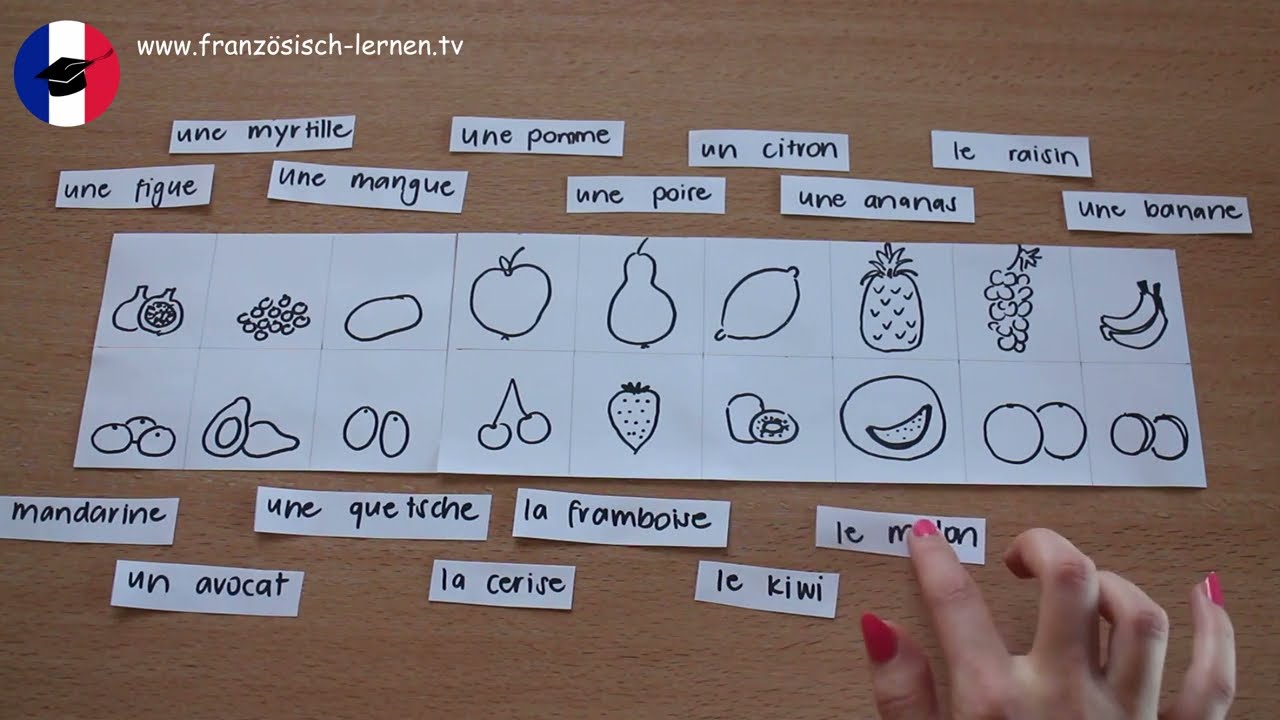 www.französisch-lernen.tv
une myrtille
une pomme
un citron
le raisin
une figue
une mangue
une poire
une ananas
une banane
mandarine
une quetsche
la framboise
le
un avocat
la cerise
le kiwi